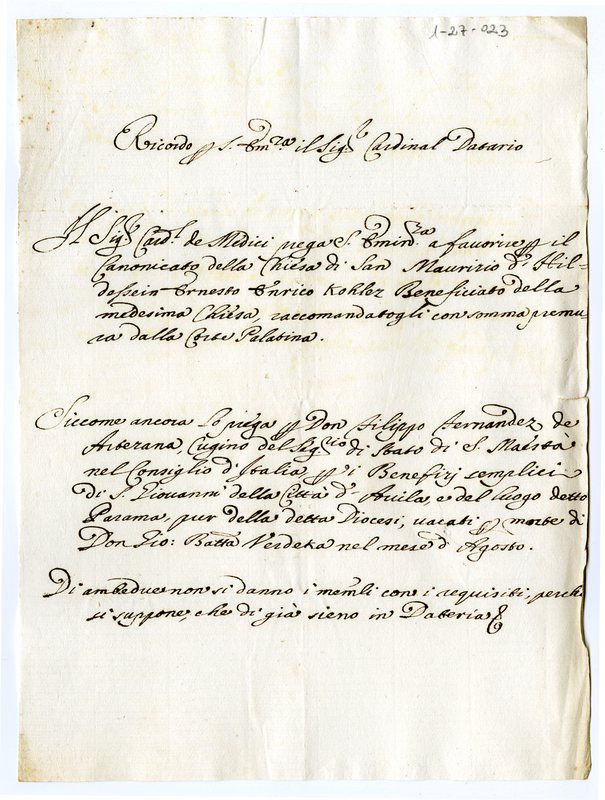 1-27-023
Ricordo p S. Em.za il Sig.r Cardinal Datario
Il Sig.r Card.l de Medici prega S. Emin.za a favorire p il
Canonicato della Chiesa di San Maurizio d'Hil=
dessein Ernesto Enrico Kohler Beneficiato della
medesima Chiesa, raccomandatogli con somma premu=
ra dalla Corte Palatina.
Siccome ancora lo priega p Don Filippo Fernandez de
Arterana, Cugino del Seg.rio di Stato di S. Maestà
nel Consiglio d'Italia p i Benefizj semplici
di S. Giovanni della Città d'Avila, e del luogo detto
Parama, pur della detta Diocesi, vacati p morte di
Don Gio: Batta Verdeta nel mese d'Agosto.
Di ambedue non si danno i mem.li con i requisiti, perche
si suppone, che di già sieno in Dateria